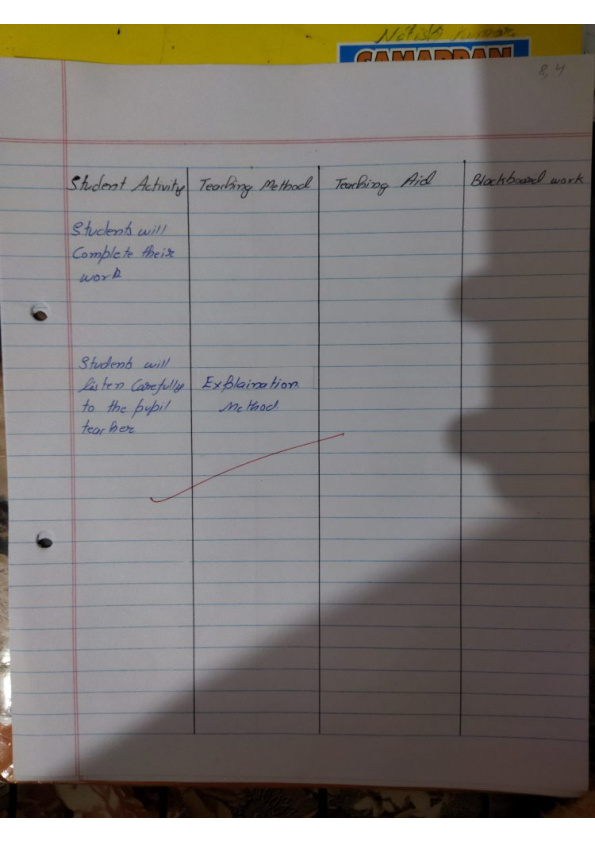 Nitish Kumar
SAMARPAN
B, 4
Student Activity Teaching Method Teaching Aid Blackboard work
Students will
Complete their
work
Students will
listen Carefully Explaination
to the pupil Method
teacher